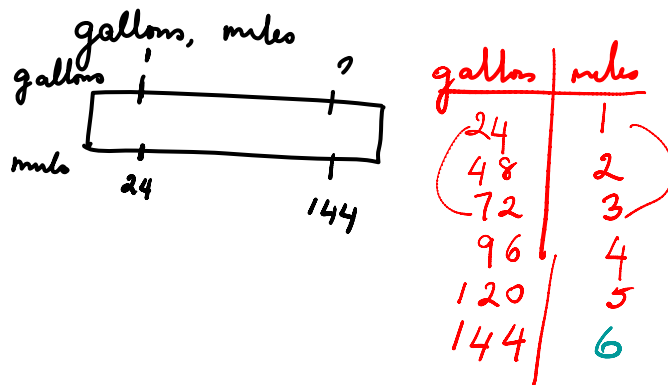 gallons, miles
gallons 1 ?
miles
24 144
gallons miles
24 1
48 2
72 3
96 4
120 5
144 6